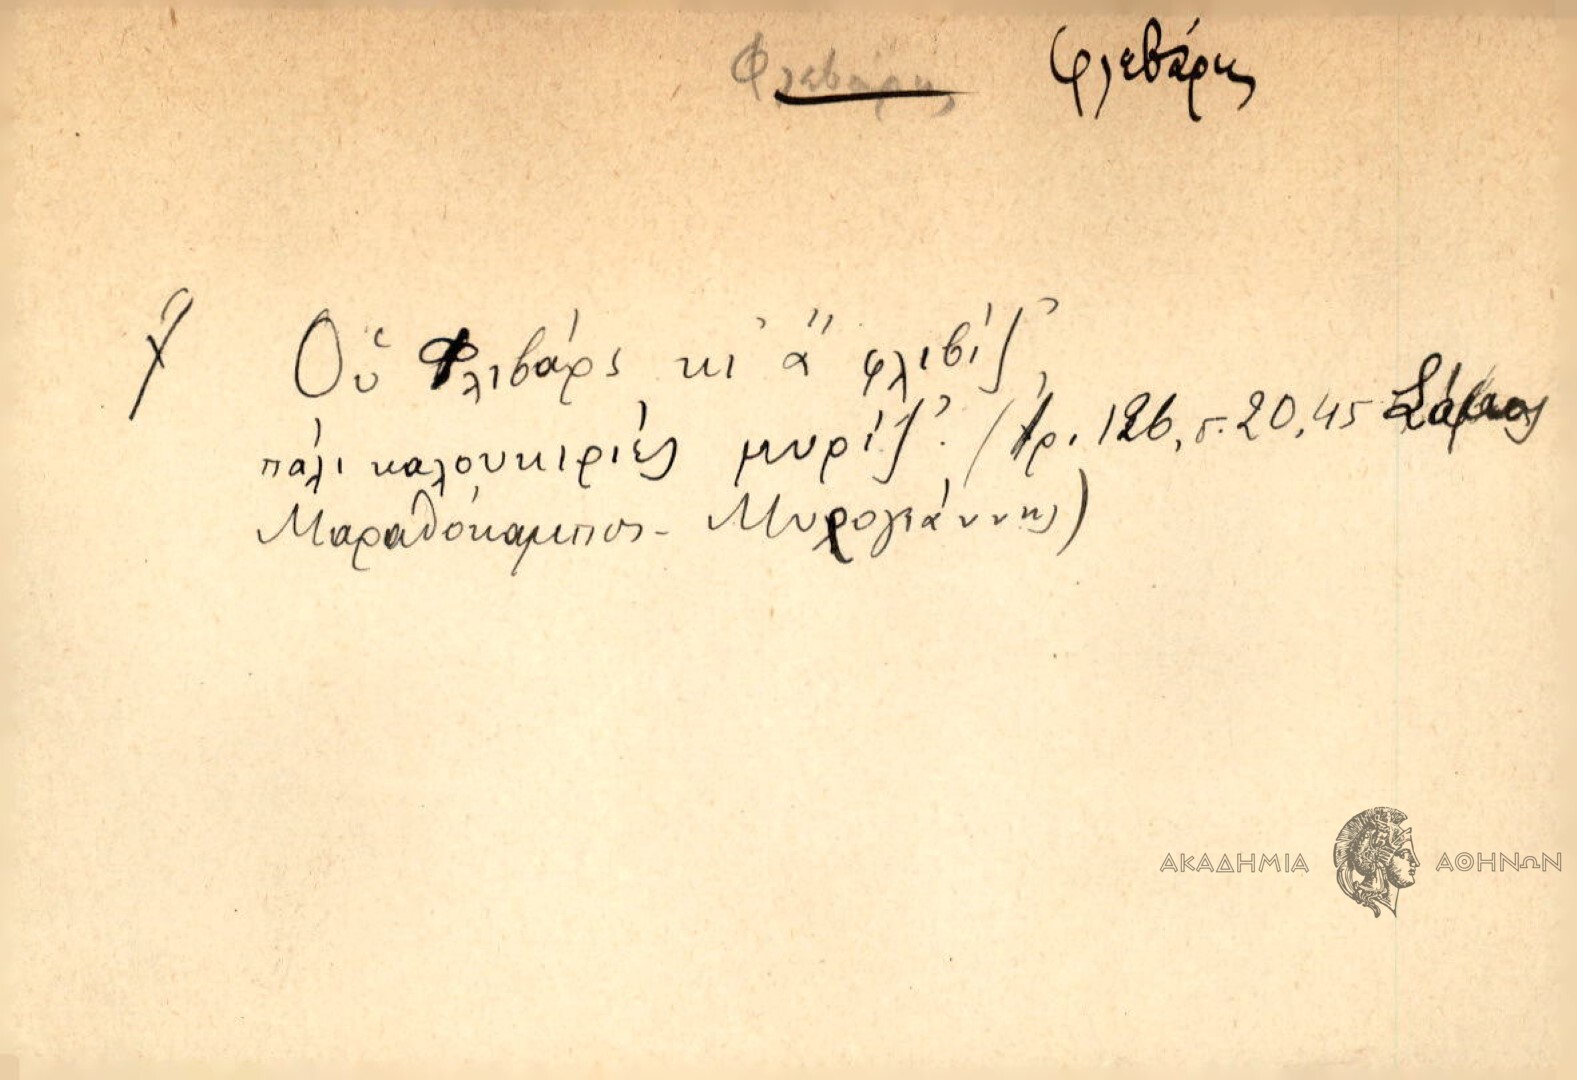 Φλεβάρης Φλεβάρης
Οὑ Φλιβάρς κι᾽ ἄ φλιβίζ᾽
πάλι καλουκιριές μυρίζ᾽. (Ἀρ. 126, σ. 20, 45 Σάμος
Μαραθόκαμπος - Μυρογιάννης)
ΑΚΑΔΗΜΙΑ ΑΘΗΝΩΝ